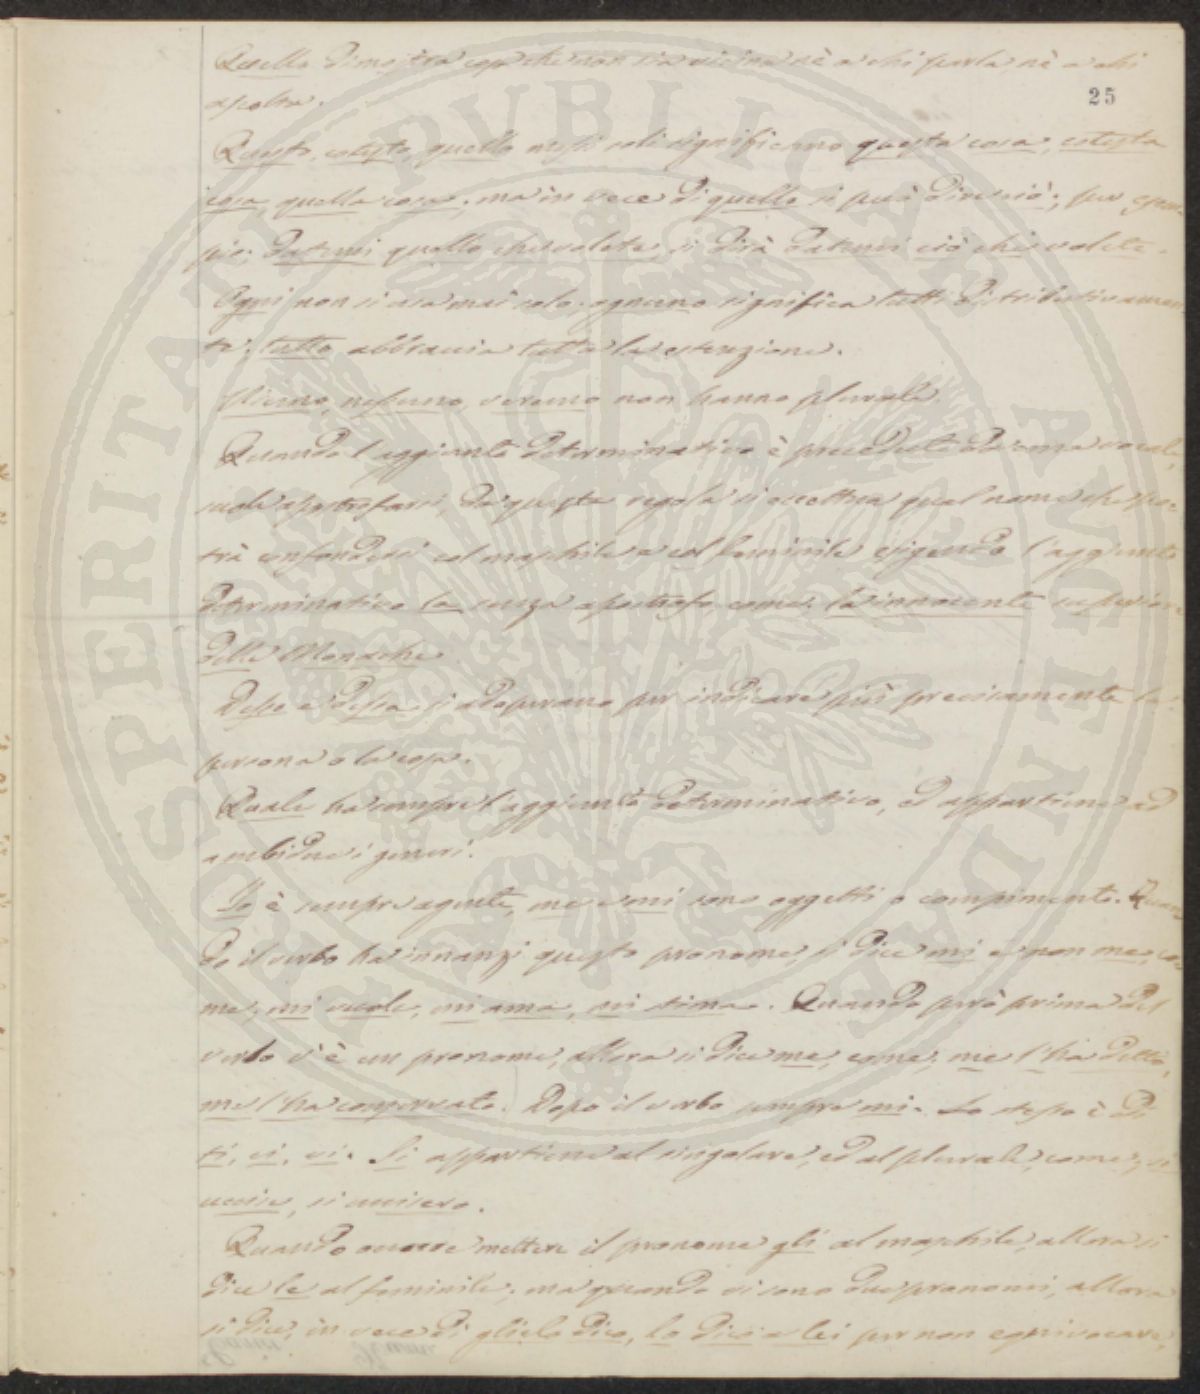 Quello dimostra cosa che non sia vicina nè a chi parla, nè a chi
ascolta.
25
Questo, cotesto, quello messi soli significano questa cosa, cotesta
cosa, quella cosa; ma in vece di quello si può dire ciò; per esem-
pio: datemi quello che volete, si dirà datemi ciò che volete.
Ogni non si usa mai solo. ognuno significa tutti distributivamen-
te. tutto abbraccia tutta la estenzione.
Niuno, nessuno, veruno non hanno plurale.
Quando l'aggiunto determinativo è preceduto da una vocale,
suole apostrofarsi, da questa regola si eccettua quel nome che po-
trà confondersi col maschile o col feminile esigendo l'aggiunto
determinativo la senza apostrofo, come: la innocente superiora
delle Monache
Desso e dessa si adoperano per indicare più precisamente la
persona o la cosa.
Quale ha sempre l'aggiunto determinativo, ed appartiene ad
ambidue i generi.
Io è sempre agente, me e mi sono oggetti o compimento. Quan-
do il verbo ha innanzi questo pronome, si dice mi e non me, co-
me; mi vuole, mi ama, mi stima. Quando però prima del
verbo v'è un pronome, allora si dice me, come; me l'ha detto,
me l'ha conservato. Dopo il verbo sempre mi. Lo stesso è di
ti, ci, vi. Si appartiene al singolare, ed al plurale, come; si
uccise, si unisero.
Quando occorre mettere il pronome gli al maschile, allora si
dice le al feminile; ma quando vi sono due pronomi, allora
si dice, in vece di glielo dico, lo dico a lei per non equivocare,
PROSPERITATI PUBLICAE AUGENDAE